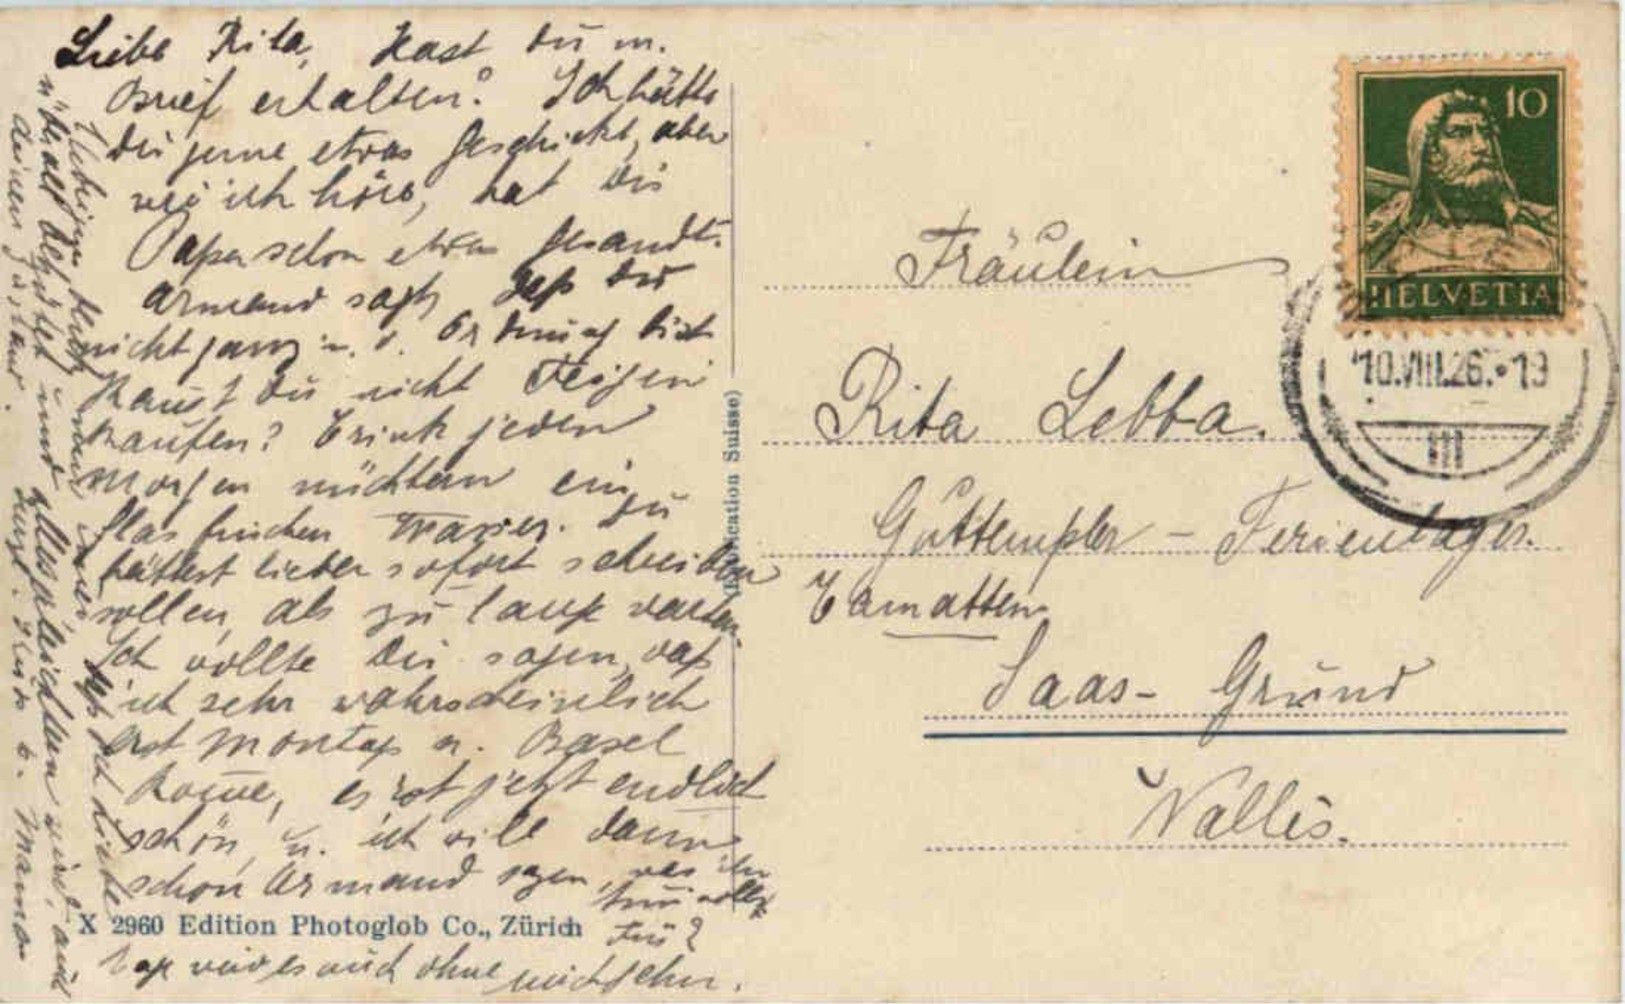 Liebe Rita, Hast Du m.
Brief erhalten? Ich hätte
Dir gerne etwas geschickt, aber
wie ich höre, hat Dir
Papa schon etwas gesandt.
Armand sagt, daß Du
nicht ganz
Kannst Du nicht Feigen
kaufen? Trink jeden
Morgen nüchtern ein
Glas frisches Wasser. Du
hättest lieber sofort schreiben
sollen, als zu lang warten.
Ich wollte Dir sagen, daß
ich sehr wahrscheinlich
erst Montag n. Basel
komme, es ist jetzt endlich
schön, u. ich will dann
schon Armand sagen, was ihr
tun wollt
X 2960 Edition Photoglob Co., Zürich
wird es auch ohne mich gehn.
daß ich Liebe
überall behütet und
wird, auch
Maman
(Fabrication Suisse)
10
HELVETIA
10.VIII.26.•19
III
Fräulein
Rita Lebba.
Guttempler - Ferienlager.
Tamatten
Saas-Grund
Wallis.